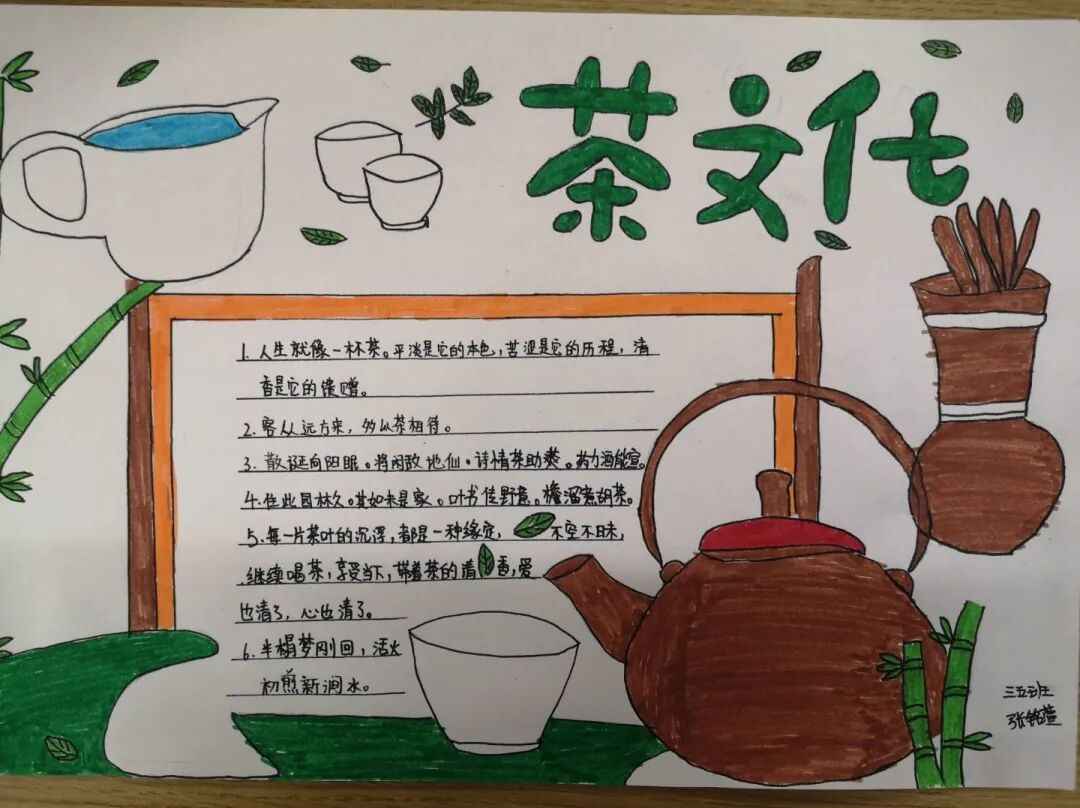 茶文化
1. 人生就像一杯茶。平淡是它的本色，苦涩是它的历程，清
香是它的馈赠。
2. 客从远方来，多以茶相待。
3. 散诞向阳眠。将闲敌地仙。诗情茶助爽。药力酒能宣。
4. 住此园林久。其如未是家。叶书传野意。檐溜煮胡茶。
5. 每一片茶叶的沉浮，都是一种缘定，不空不昧，
继续喝茶，享受当下，带着茶的清香，爱
也清了，心也清了。
6. 半榻梦刚回，活火
初煎新涧水。
三五班
张铭萱